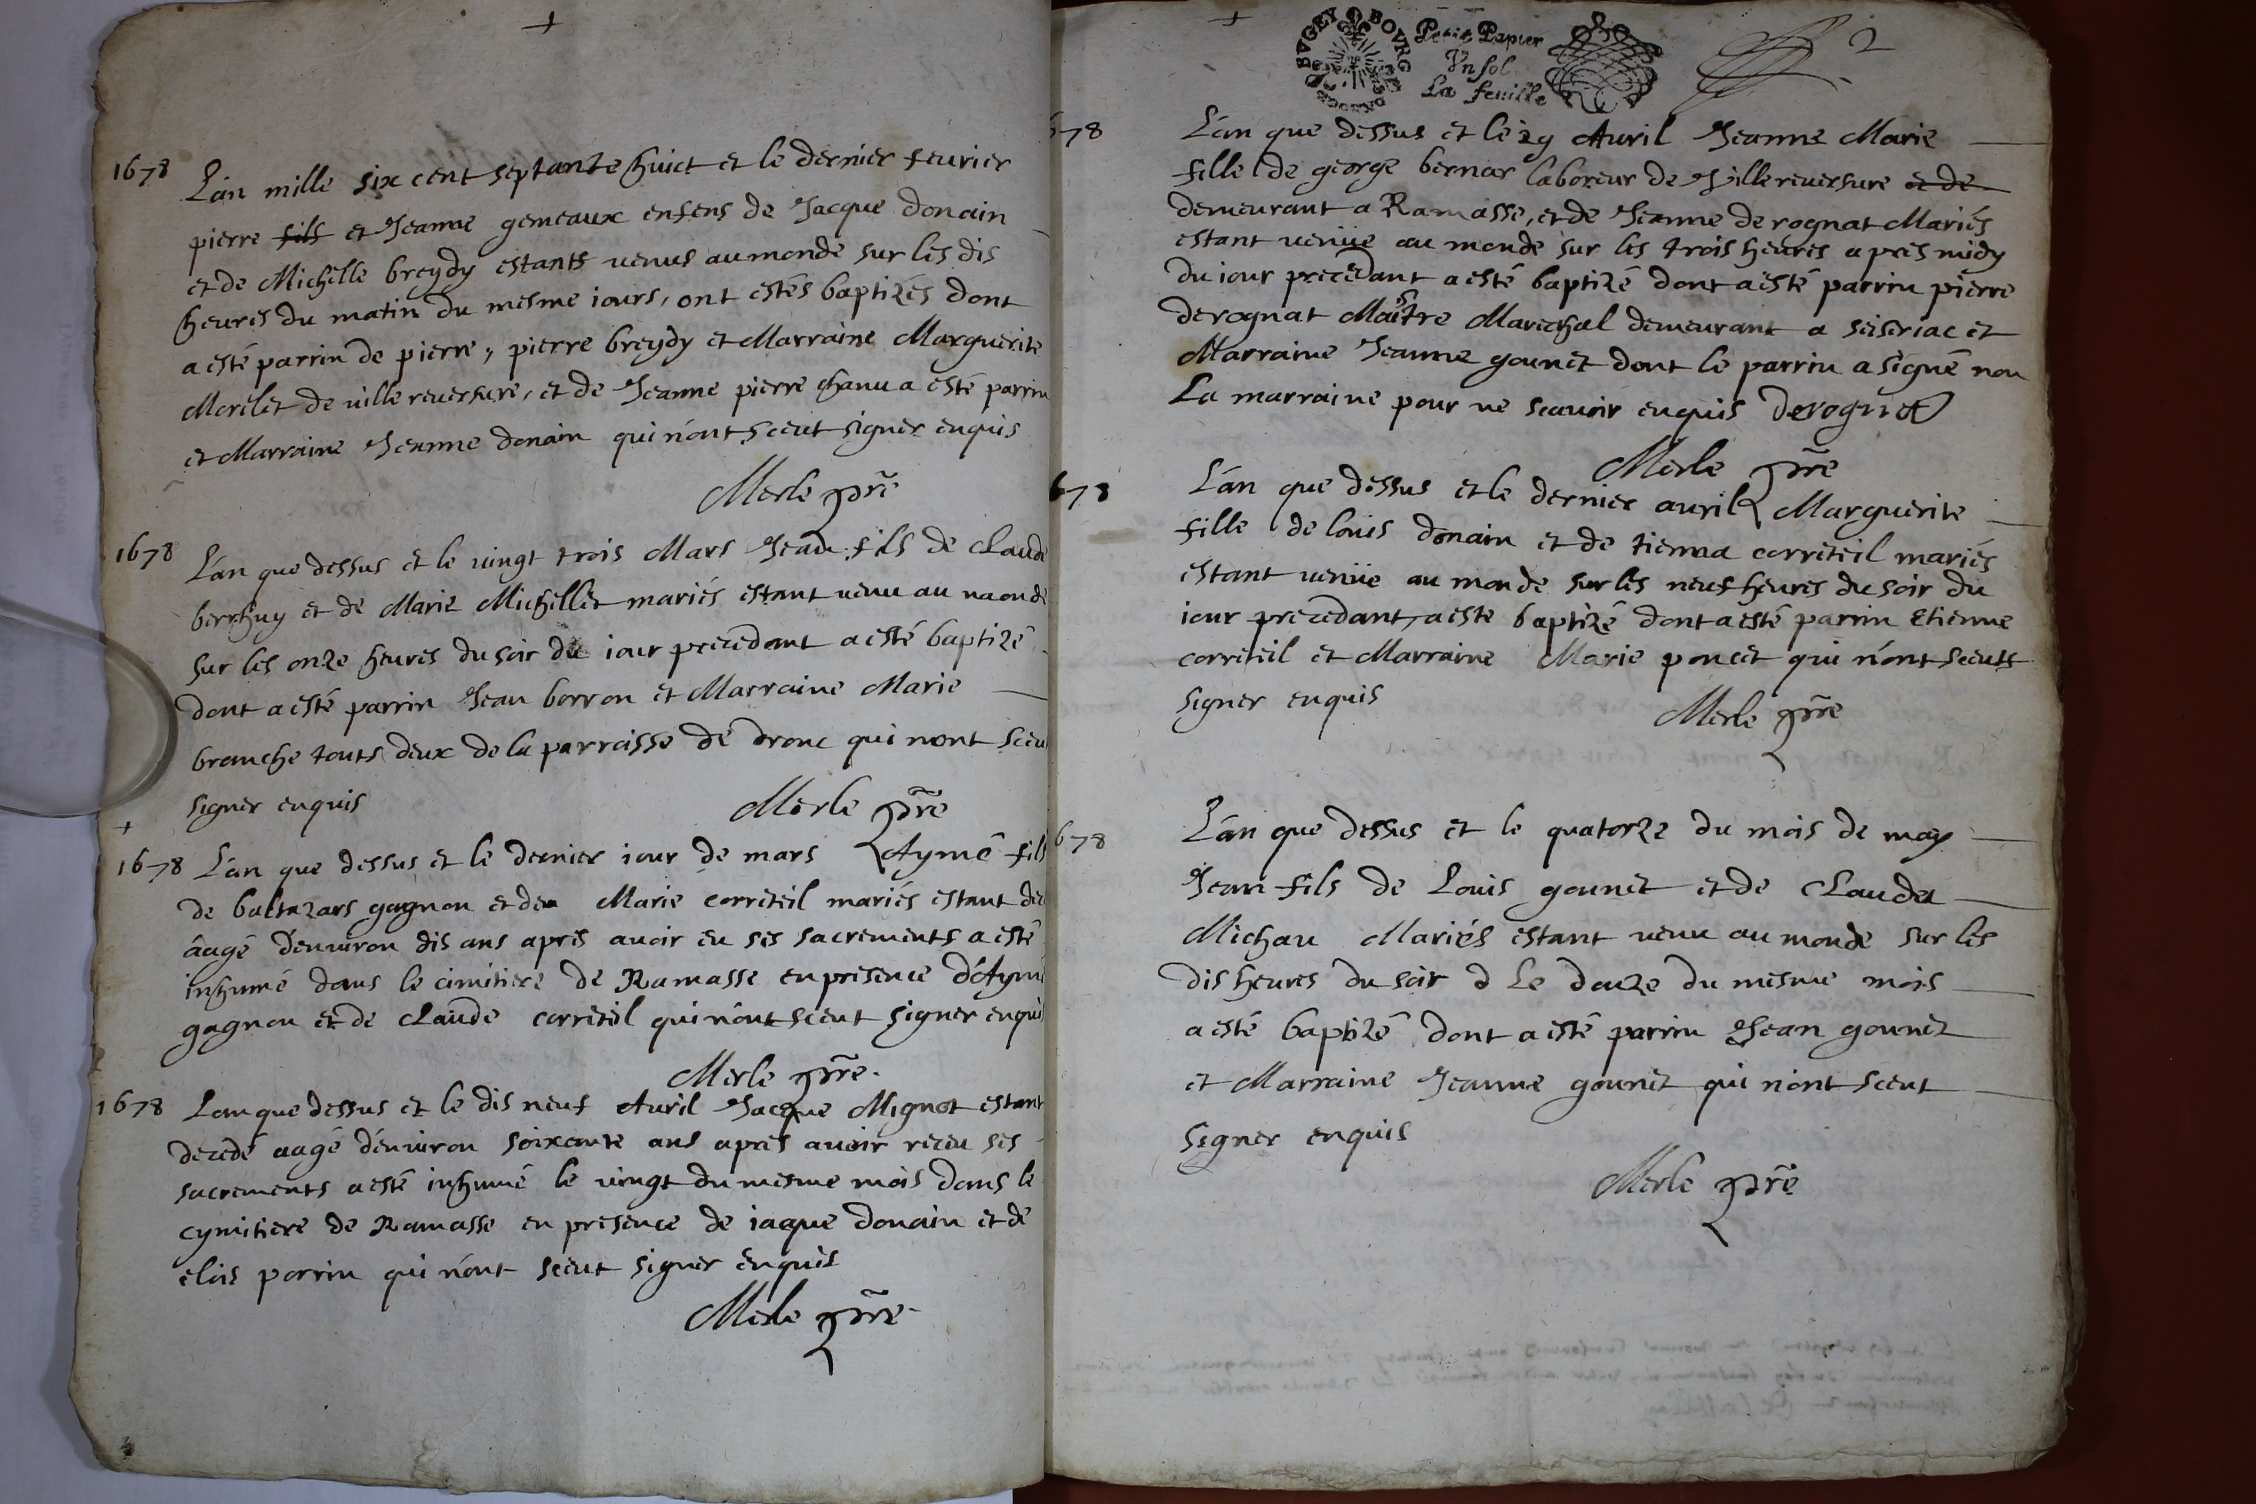 +
1678
L'an mille six cent septante huict et le dernier feurier
pierre fils et Jeanne gemeaux enfens de Jacque donain
et de Michelle breydy estants venus au monde sur les dis
heures du matin du mesme iours, ont estés baptizés dont
a esté parrin de pierre, pierre breydy et Marraine Marguerite
Morelet de ville reuersure, et de Jeanne pierre chanu a esté parrin
et Marraine Jeanne donain qui n'ont sceut signer enquis
Merle pre
1678
L'an que dessus et le vingt trois Mars Jean fils de Claude
berthuy et de Marie Michellet mariés estant venu au monde
sur les onze heures du soir du iour precedant a esté baptizé
dont a esté parrin Jean borron et Marraine Marie
branche touts deux de la parroisse de drom qui n'ont sceu
signer enquis
Merle pre
+
1678
L'an que dessus et le dernier iour de mars Aymé fils
de baltazars gagnon et de Marie correteil mariés estant
âagé d'enuiron dis ans apres auoir eu ses sacrements a esté
inhumé dans le cimitiere de Ramasse en presence d'Aymé
gagnon et de Claude correteil qui n'ont sceut signer enquis
Merle pre
1678
L'an que dessus et le dis neuf Auril Jacque Mignot estant
decedé aagé d'enuiron soixante ans apres auoir receu ses
sacrements a esté inhumé le vingt du mesme mois dans le
cymitiere de Ramasse en presence de iaque donain et de
elois perrin qui n'ont sceut signer enquis
Merle pre
+
BVGEY BOVRG
Petit Papier
Vn sol
La feuille
2
678
L'an que dessus et le 29 Auril Jeanne Marie
fille de george bernar laboreur de Ville reuersure et de
demeurant a Ramasse, et de Jeanne derognat Mariés
estant venüe au monde sur les trois heures apres midy
du iour precedant a esté baptizé dont a esté parrin pierre
derognat Maistre Marechal demeurant a seisriac et
Marraine Jeanne gounet dont le parrin a signé non
La marraine pour ne scauoir enquis Derognat
Merle pre
678
L'an que dessus et le dernier auril Marguerite
fille de louis donain et de tienna correteil mariés
estant venüe au monde sur les neuf heures du soir du
iour precedant, a este baptizé dont a esté parrin Etienne
correteil et Marraine Marie poncet qui n'ont sceuts
signer enquis
Merle pre
678
L'an que dessus et le quatorze du mois de may
Jean fils de Louis gounet et de Clauda
Michau Mariés estant venu au monde sur les
dis heures du soir d Le douze du mesme mois
a esté baptizé dont a esté parrin Jean gounet
et Marraine Jeanne gounet qui n'ont sceut
signer enquis
Merle pre